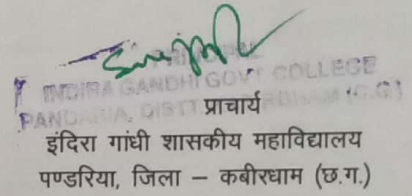 PRINCIPAL
INDIRA GANDHI GOVT COLLEGE
PANDARIA, DISTT. KABIRDHAM (C.G)
प्राचार्य
इंदिरा गांधी शासकीय महाविद्यालय
पण्डरिया, जिला – कबीरधाम (छ.ग.)